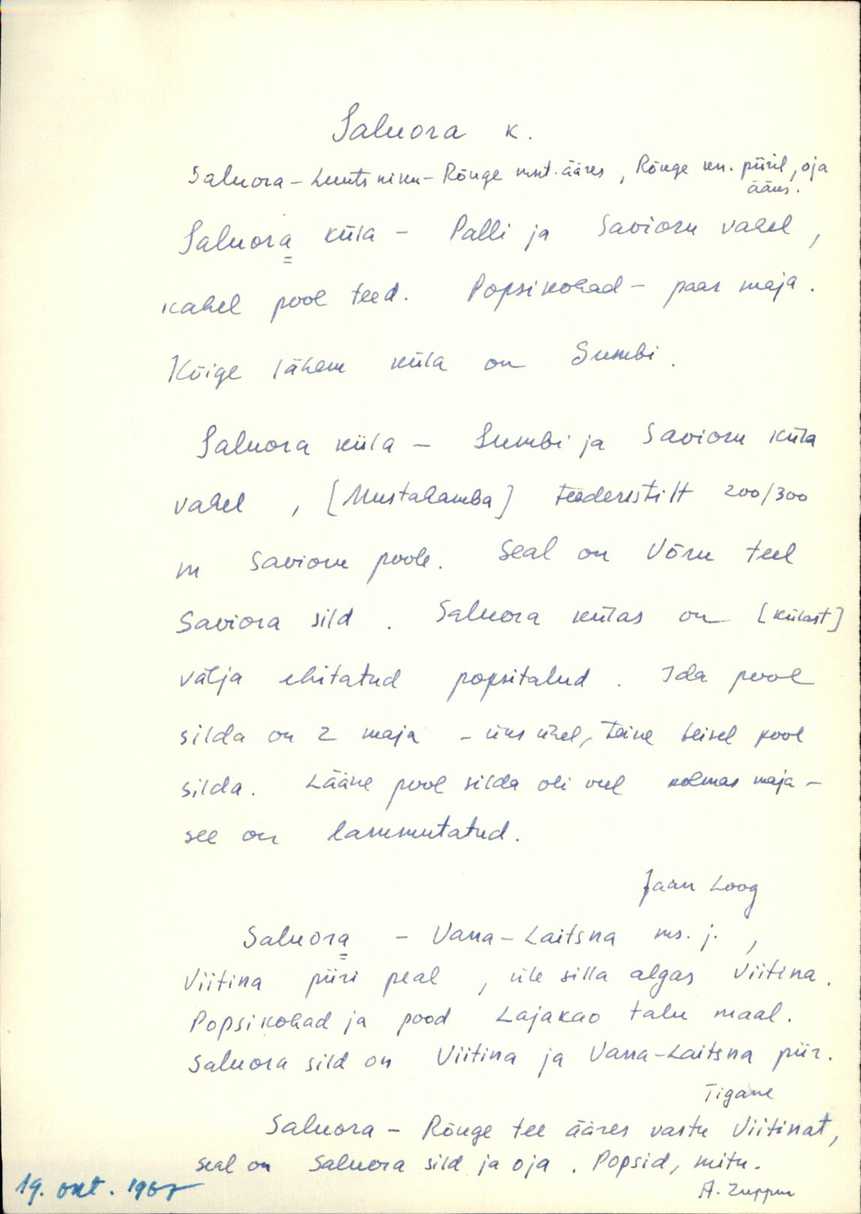 Saluora k.
Saluora – Luutsniku – Rõuge mnt. ääres, Rõuge kn. piiril, oja
ääres.
Saluora küla – Palli ja Savioru vahel,
kahel pool teed. Popsikohad – paar maja.
Kõige lähem küla on Sumbi.
Saluora küla – Sumbi ja Savioru küla
vahel, [Mustahamba] teederistilt 200/300
m Savioru poole. Seal on Võru teel
Saviora sild. Saluora külas on [külast]
välja ehitatud popsitalud. Ida pool
silda on 2 maja – üks ühel, teine teisel pool
silda. Lääne pool silda oli veel kolmas maja –
see on lammutatud.
Jaan Loog
Saluora – Vana-Laitsna ms. j.,
Viitina piiri peal, üle silla algas Viitina.
Popsikohad ja pood Lajakao talu maal.
Saluora sild on Viitina ja Vana-Laitsna piir.
Tigane
Saluora – Rõuge tee ääres vastu Viitinat,
seal on Saluora sild ja oja. Popsid, mitu.
A. Zuppur
19. okt. 1967